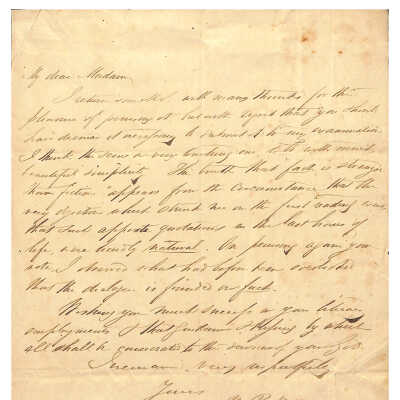 My dear Madam
I return with many thanks for the
pleasure of perusing it but with regret that you should
have deemed it necessary to submit it to my examination
I think the scene a very touching one, & told with much
beautiful simplicity. The truth that "fact is stranger
than fiction" appears from the circumstance that the
very objection which struck me on the first reading was
that such apposite quotations in the last hours of
life, were scarcely natural. On perusing again your
note I observed what had before been overlooked
that the dialogue is founded on fact.
Wishing you much success in your literary
employments & that guidance & blessing by which
all shall be consecrated to the service of your God
I remain very respectfully
Yours